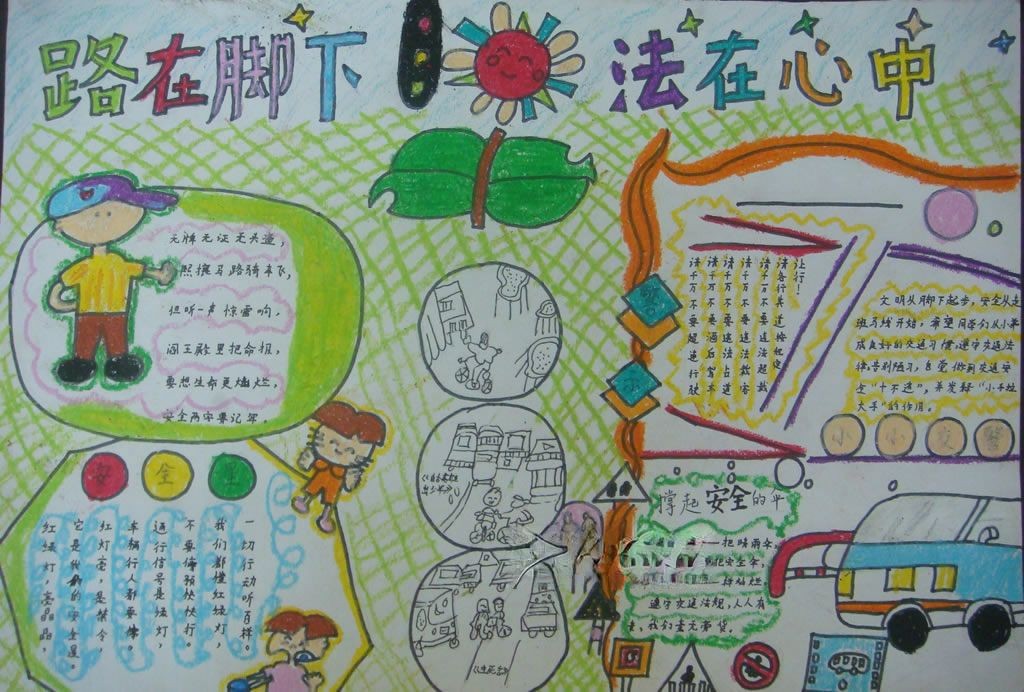 路在脚下 法在心中
无牌无证无头盔,
照摸马路骑车飞,
但听一声惊雷响,
阎王殿里把命报,
要想生命更灿烂,
安全两字要记牢。
安全里
一切行动听指挥。
我们都懂红绿灯,
不要慌张快快行。
通行信号是绿灯,
车辆行人都要停。
红灯亮,是禁令,
它是我们的安全星。
红绿灯,亮晶晶,
《生死恋》
让行!
请各行其道按规定
请千万不要违法超载
请千万不要违法载客
请千万不要违法占道
请千万不要酒后驾车
请千万不要超速行驶
文明从脚下起步,安全从走
斑马线开始,希望同学们从小养
成良好的交通习惯,遵守交通法
规,告别陋习,自觉做到交通安
全“十不违”,并发挥“小手拉
大手”的作用。
小小交警
撑起安全的伞
一把晴雨伞,
把安全伞,
一样灿烂,
遵守交通法规,人人有
责,我们责无旁贷。